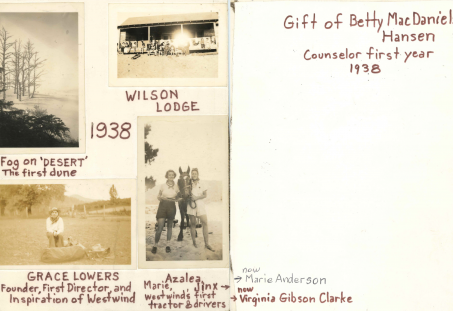 Gift of Betty MacDaniel
Hansen
Counselor first year
1938
WILSON
LODGE
1938
Fog on 'DESERT'
The first dune
GRACE LOWERS
Founder, First Director, and
Inspiration of Westwind
Azalea,
Marie, Jinx →
Westwind's first
tractor & drivers
now
→ Marie Anderson
now
→ Virginia Gibson Clarke